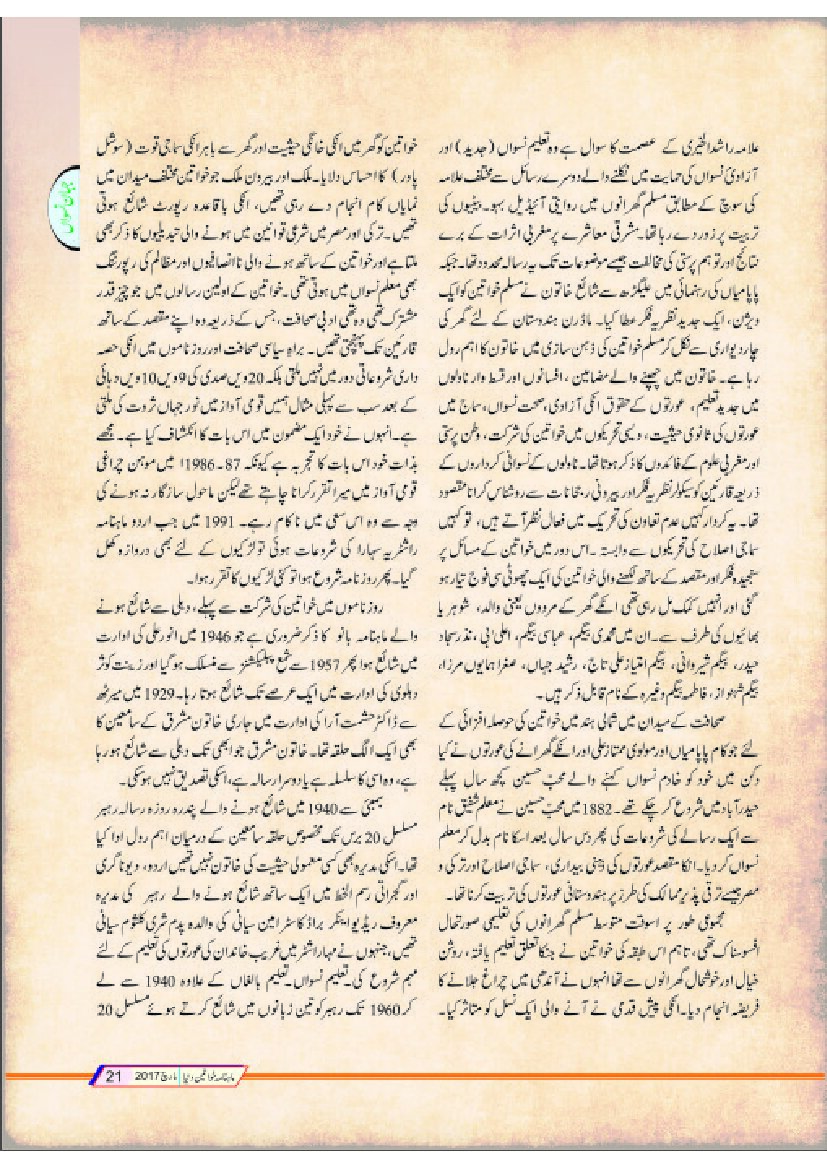 علامہ راشد الخیری کے عصمت کا سوال ہے وہ تعلیم نسواں (جدید) اور
آزادیٔ نسواں کی حمایت میں نکلنے والے دوسرے رسائل سے مختلف علامہ
کی سوچ کے مطابق مسلم گھرانوں میں روایتی آئیڈیل بہو۔بیٹیوں کی
تربیت پر زور دے رہا تھا۔مشرقی معاشرے پر مغربی اثرات کے برے
نتائج اور توہم پرستی کی مخالفت جیسے موضوعات تک یہ رسالہ محدود تھا۔ جبکہ
پاپا میاں کی رہنمائی میں علیگڑھ سے شائع خاتون نے مسلم خواتین کو ایک
ویژن، ایک جدید نظریہ فکر عطا کیا۔ ماڈرن ہندوستان کے لئے گھر کی
چار دیواری سے نکل کر مسلم خواتین کی ذہن سازی میں خاتون کا اہم رول
رہا ہے۔ خاتون میں چھپنے والے مضامین ، افسانوں اور قسط وار ناولوں
میں جدید تعلیم، عورتوں کے حقوق انکی آزادی ،صحت نسواں، سماج میں
عورتوں کی ثانوی حیثیت ، دیسی تحریکوں میں خواتین کی شرکت ، وطن پرستی
اور مغربی علوم کے فائدوں کا ذکر ہوتا تھا۔ ناولوں کے نسوانی کرداروں کے
ذریعہ قارئین کو سیکولر نظریہ فکر اور بیرونی رجحانات سے روشناس کرانا مقصود
تھا۔ یہ کردار کہیں عدم تعاون کی تحریک میں فعال نظر آتے ہیں، تو کہیں
سماجی اصلاح کی تحریکوں سے وابستہ ۔اس دور میں خواتین کے مسائل پر
سنجیدہ فکر اور مقصد کے ساتھ لکھنے والی خواتین کی ایک چھوٹی سی فوج تیار ہو
گئی اور انہیں کمک مل رہی تھی انکے گھر کے مردوں یعنی والد، شوہر یا
بھائیوں کی طرف سے۔ ان میں محمدی بیگم، عباسی بیگم، اعلیٰ بی، نذر سجاد
حیدر، بیگم شیروانی، بیگم امتیاز علی تاج، رشید جہاں، صغرا ہمایوں مرزا،
بیگم شہنواز، فاطمہ بیگم وغیرہ کے نام قابل ذکر ہیں۔
صحافت کے میدان میں شمالی ہند میں خواتین کی حوصلہ افزائی کے
لئے جو کام پاپا میاں اور مولوی ممتاز علی اور انکے گھرانے کی عورتوں نے کیا
دکن میں خود کو خادم نسواں کہنے والے محب حسین کچھ سال پہلے
حیدرآباد میں شروع کر چکے تھے۔ 1882 میں محب حسین نے معلم شفیق نام
سے ایک رسالے کی شروعات کی پھر دس سال بعد اسکا نام بدل کر معلم
نسواں کر دیا۔ انکا مقصد عورتوں کی ذہنی بیداری، سماجی اصلاح اور ترکی و
مصر جیسے ترقی پذیر ممالک کی طرز پر ہندوستانی عورتوں کی تربیت کرنا تھا۔
مجموعی طور پر اسوقت متوسط مسلم گھرانوں کی تعلیمی صورتحال
افسوسناک تھی، تاہم اس طبقہ کی خواتین نے جنکا تعلق تعلیم یافتہ ، روشن
خیال اور خوشحال گھرانوں سے تھا انہوں نے آندھی میں چراغ جلانے کا
فریضہ انجام دیا۔ انکی پیش قدمی نے آنے والی ایک نسل کو متاثر کیا۔
خواتین کو گھر میں انکی خانگی حیثیت اور گھر سے باہر انکی سماجی قوت (سوشل
پاور) کا احساس دلایا۔ ملک اور بیرون ملک جو خواتین مختلف میدان میں
نمایاں کام انجام دے رہی تھیں، انکی باقاعدہ رپورٹ شائع ہوتی
تھیں۔ ترکی اور مصر میں شرعی قوانین میں ہونے والی تبدیلیوں کا ذکر بھی
ملتا ہے اور خواتین کے ساتھ ہونے والی ناانصافیوں اور مظالم کی رپورٹنگ
بھی معلم نسواں میں ہوتی تھی ۔خواتین کے اولین رسالوں میں جو چیز قدر
مشترک تھی وہ تھی ادبی صحافت، جس کے ذریعہ وہ اپنے مقصد کے ساتھ
قارئین تک پہنچتی تھیں۔ براہ سیاسی صحافت اور روزناموں میں انکی حصہ
داری شروعاتی دور میں نہیں ملتی بلکہ 20ویں صدی کی 9ویں 10ویں دہائی
کے بعد سب سے پہلی مثال ہمیں قومی آواز میں نور جہاں ثروت کی ملتی
ہے۔ انہوں نے خود ایک مضمون میں اس بات کا انکشاف کیا ہے۔ مجھے
بذات خود اس بات کا تجربہ ہے کیونکہ 87۔1986 میں موہن چراغی
قومی آواز میں میرا تقرر کرانا چاہتے تھے لیکن ماحول سازگار نہ ہونے کی
وجہ سے وہ اس سعی میں ناکام رہے۔ 1991 میں جب اردو ماہنامہ
راشٹریہ سہارا کی شروعات ہوئی تو لڑکیوں کے لئے بھی دروازہ کھل
گیا۔ پھر روزنامہ شروع ہوا تو کئی لڑکیوں کا تقرر ہوا۔
روزناموں میں خواتین کی شرکت سے پہلے، دہلی سے شائع ہونے
والے ماہنامہ بانو کا ذکر ضروری ہے جو 1946 میں انور علی کی ادارت
میں شائع ہوا پھر 1957 سے شمع پبلیکیشنز سے منسلک ہو گیا اور زینت کوثر
دہلوی کی ادارت میں ایک عرصے تک شائع ہوتا رہا۔ 1929 میں میرٹھ
سے ڈاکٹر حشمت آرا کی ادارت میں جاری خاتون مشرق کے سامعین کا
بھی ایک الگ حلقہ تھا۔ خاتون مشرق جو ابھی تک دہلی سے شائع ہو رہا
ہے، وہ اسی کا سلسلہ ہے یا دوسرا رسالہ ہے، اسکی تصدیق نہیں ہو سکی۔
بمبئی سے 1940 میں شائع ہونے والے پندرہ روزہ رسالہ رہبر
مسلسل 20 برس تک مخصوص حلقہ سامعین کے درمیان اہم رول ادا کیا
تھا۔ اسکی مدیرہ بھی کسی معمولی حیثیت کی خاتون نہیں تھیں اردو، دیوناگری
اور گجراتی رسم الخط میں ایک ساتھ شائع ہونے والے رہبر کی مدیرہ
معروف ریڈیو اینکر براڈ کاسٹر امین سیانی کی والدہ پدم شری کلثوم سیانی
تھیں، جنہوں نے مہاراشٹر میں غریب خاندان کی عورتوں کی تعلیم کے لئے
مہم شروع کی۔ تعلیم نسواں۔ تعلیم بالغاں کے علاوہ 1940 سے لے
کر 1960 تک رہبر کو تین زبانوں میں شائع کرتے ہوئے مسلسل 20
جہان نسواں
ماہنامہ خواتین دنیا مارچ 2017 21